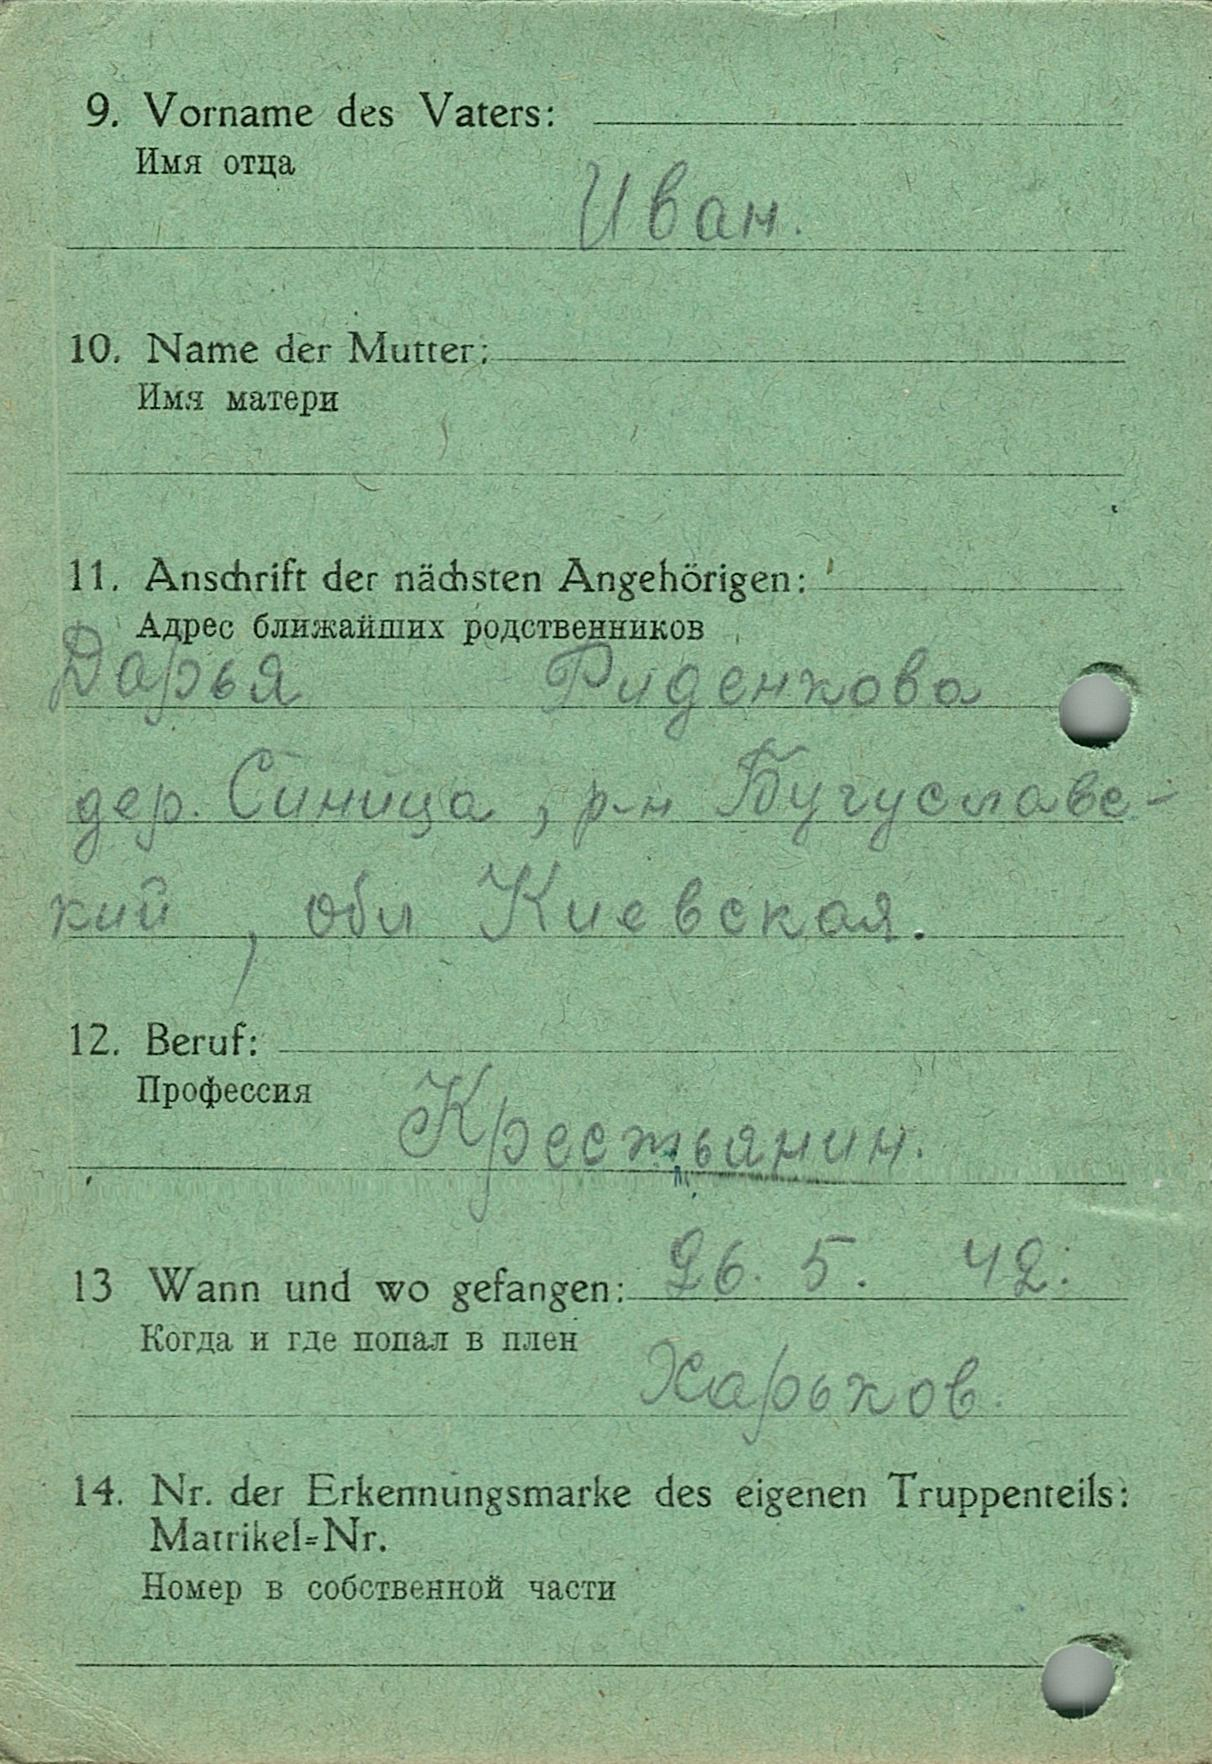 9. Vorname des Vaters:
Имя отца
Иван.
10. Name der Mutter:
Имя матери
11. Anschrift der nächsten Angehörigen:
Адрес ближайших родственников
Дарья Риденкова
дер. Синица, р-н Бугуславс-
кий, обл Киевская.
12. Beruf:
Профессия
Крестьянин.
13 Wann und wo gefangen: 26. 5. 42.
Когда и где попал в плен
Харьков.
14. Nr. der Erkennungsmarke des eigenen Truppenteils:
Matrikel=Nr.
Номер в собственной части